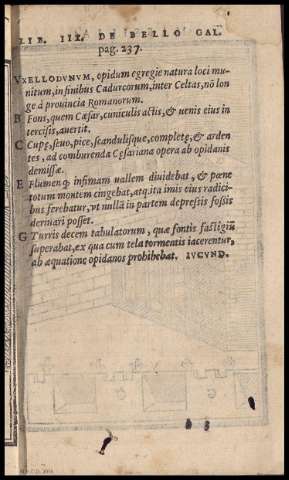 LIB. IIX. DE BELLO GAL.
pag. 237.
VXELLODVNVM, opidum egregie natura loci mu-
nitum, in finibus Cadurcorum, inter Celtas, nō lon
ge à prouincia Romanorum.
B Fons, quem Cæsar, cuniculis actis, & uenis eius in
tercisis, auertit.
C Cupę, seuo, pice, scandulisque, completę, & arden
tes, ad comburenda Cęsariana opera ab opidanis
demissæ.
E Flumen q̃ infimam uallem diuidebat, & pœne
totum montem cingebat, atq; ita imis eius radici-
bus ferebatur, vt nullā in partem depressis fossis
deriuari posset.
G Turris decem tabulatorum, quæ fontis fastigiū
superabat, ex qua cum tela tormentis iacerentur,
ab æquatione opidanos prohibebat. IVCVND.